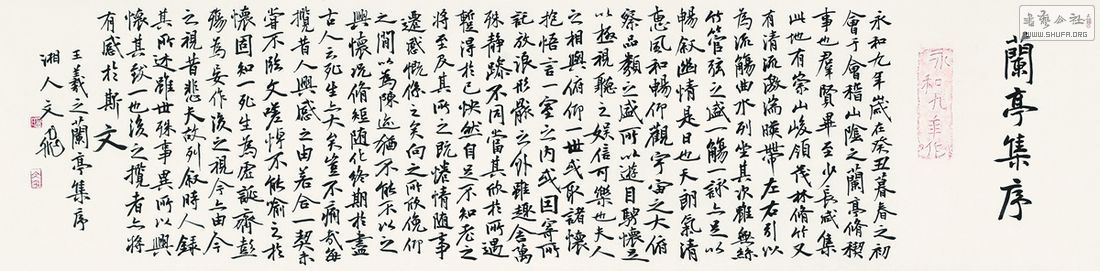 书艺公社
WWW.SHUFA.ORG
蘭亭集序
永和九年作
永和九年歲在癸丑暮春之初
會于會稽山陰之蘭亭脩稧
事也群賢畢至少長咸集
此地有崇山峻領茂林脩竹又
有清流激湍暎帶左右引以
為流觴曲水列坐其次雖無絲
竹管弦之盛一觴一詠亦足以
暢敘幽情是日也天朗氣清
惠風和暢仰觀宇宙之大俯
察品類之盛所以遊目騁懷足
以極視聽之娛信可樂也夫人
之相與俯仰一世或取諸懷
抱悟言一室之内或因寄所
託放浪形骸之外雖趣舍萬
殊静躁不同當其欣於所遇
暫得於己怏然自足不知老之
將至及其所之既惓情隨事
遷感慨係之矣向之所欣俛仰
之間以為陳迹猶不能不以之
興懷況脩短隨化終期於盡
古人云死生亦大矣豈不痛哉每
攬昔人興感之由若合一契未
甞不臨文嗟悼不能喻之於
懷固知一死生為虛誕齊彭
殤為妄作後之視今亦由今
之視昔悲夫故列敘時人錄
其所述雖世殊事異所以興
懷其致一也後之攬者亦將
有感於斯文
王羲之蘭亭集序
湘人文飛